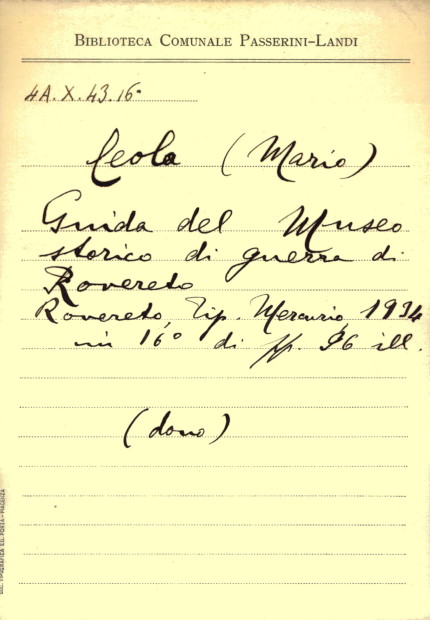 BIBLIOTECA COMUNALE PASSERINI-LANDI
4A.X.43.16°
Ceola (Mario)
Guida del Museo
storico di guerra di
Rovereto
Rovereto, Tip. Mercurio, 1934
in 16° di pp. 96 ill.
(dono)